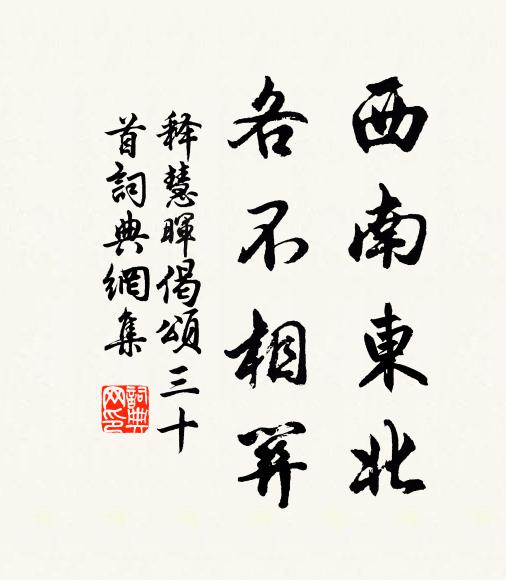 西南東北
各不相笄
释慧暉偈頌三十
首詞典網集
詞典
网印